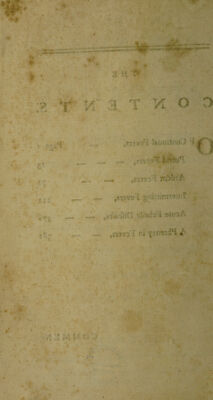 THE
CONTENTS.
OF Continual Fevers, Page 1
Putrid Fevers,
Ardent Fevers,
Intermitting Fevers,
Acute Febrile Diseases,
A Phrensy in Fevers,
COMMEN